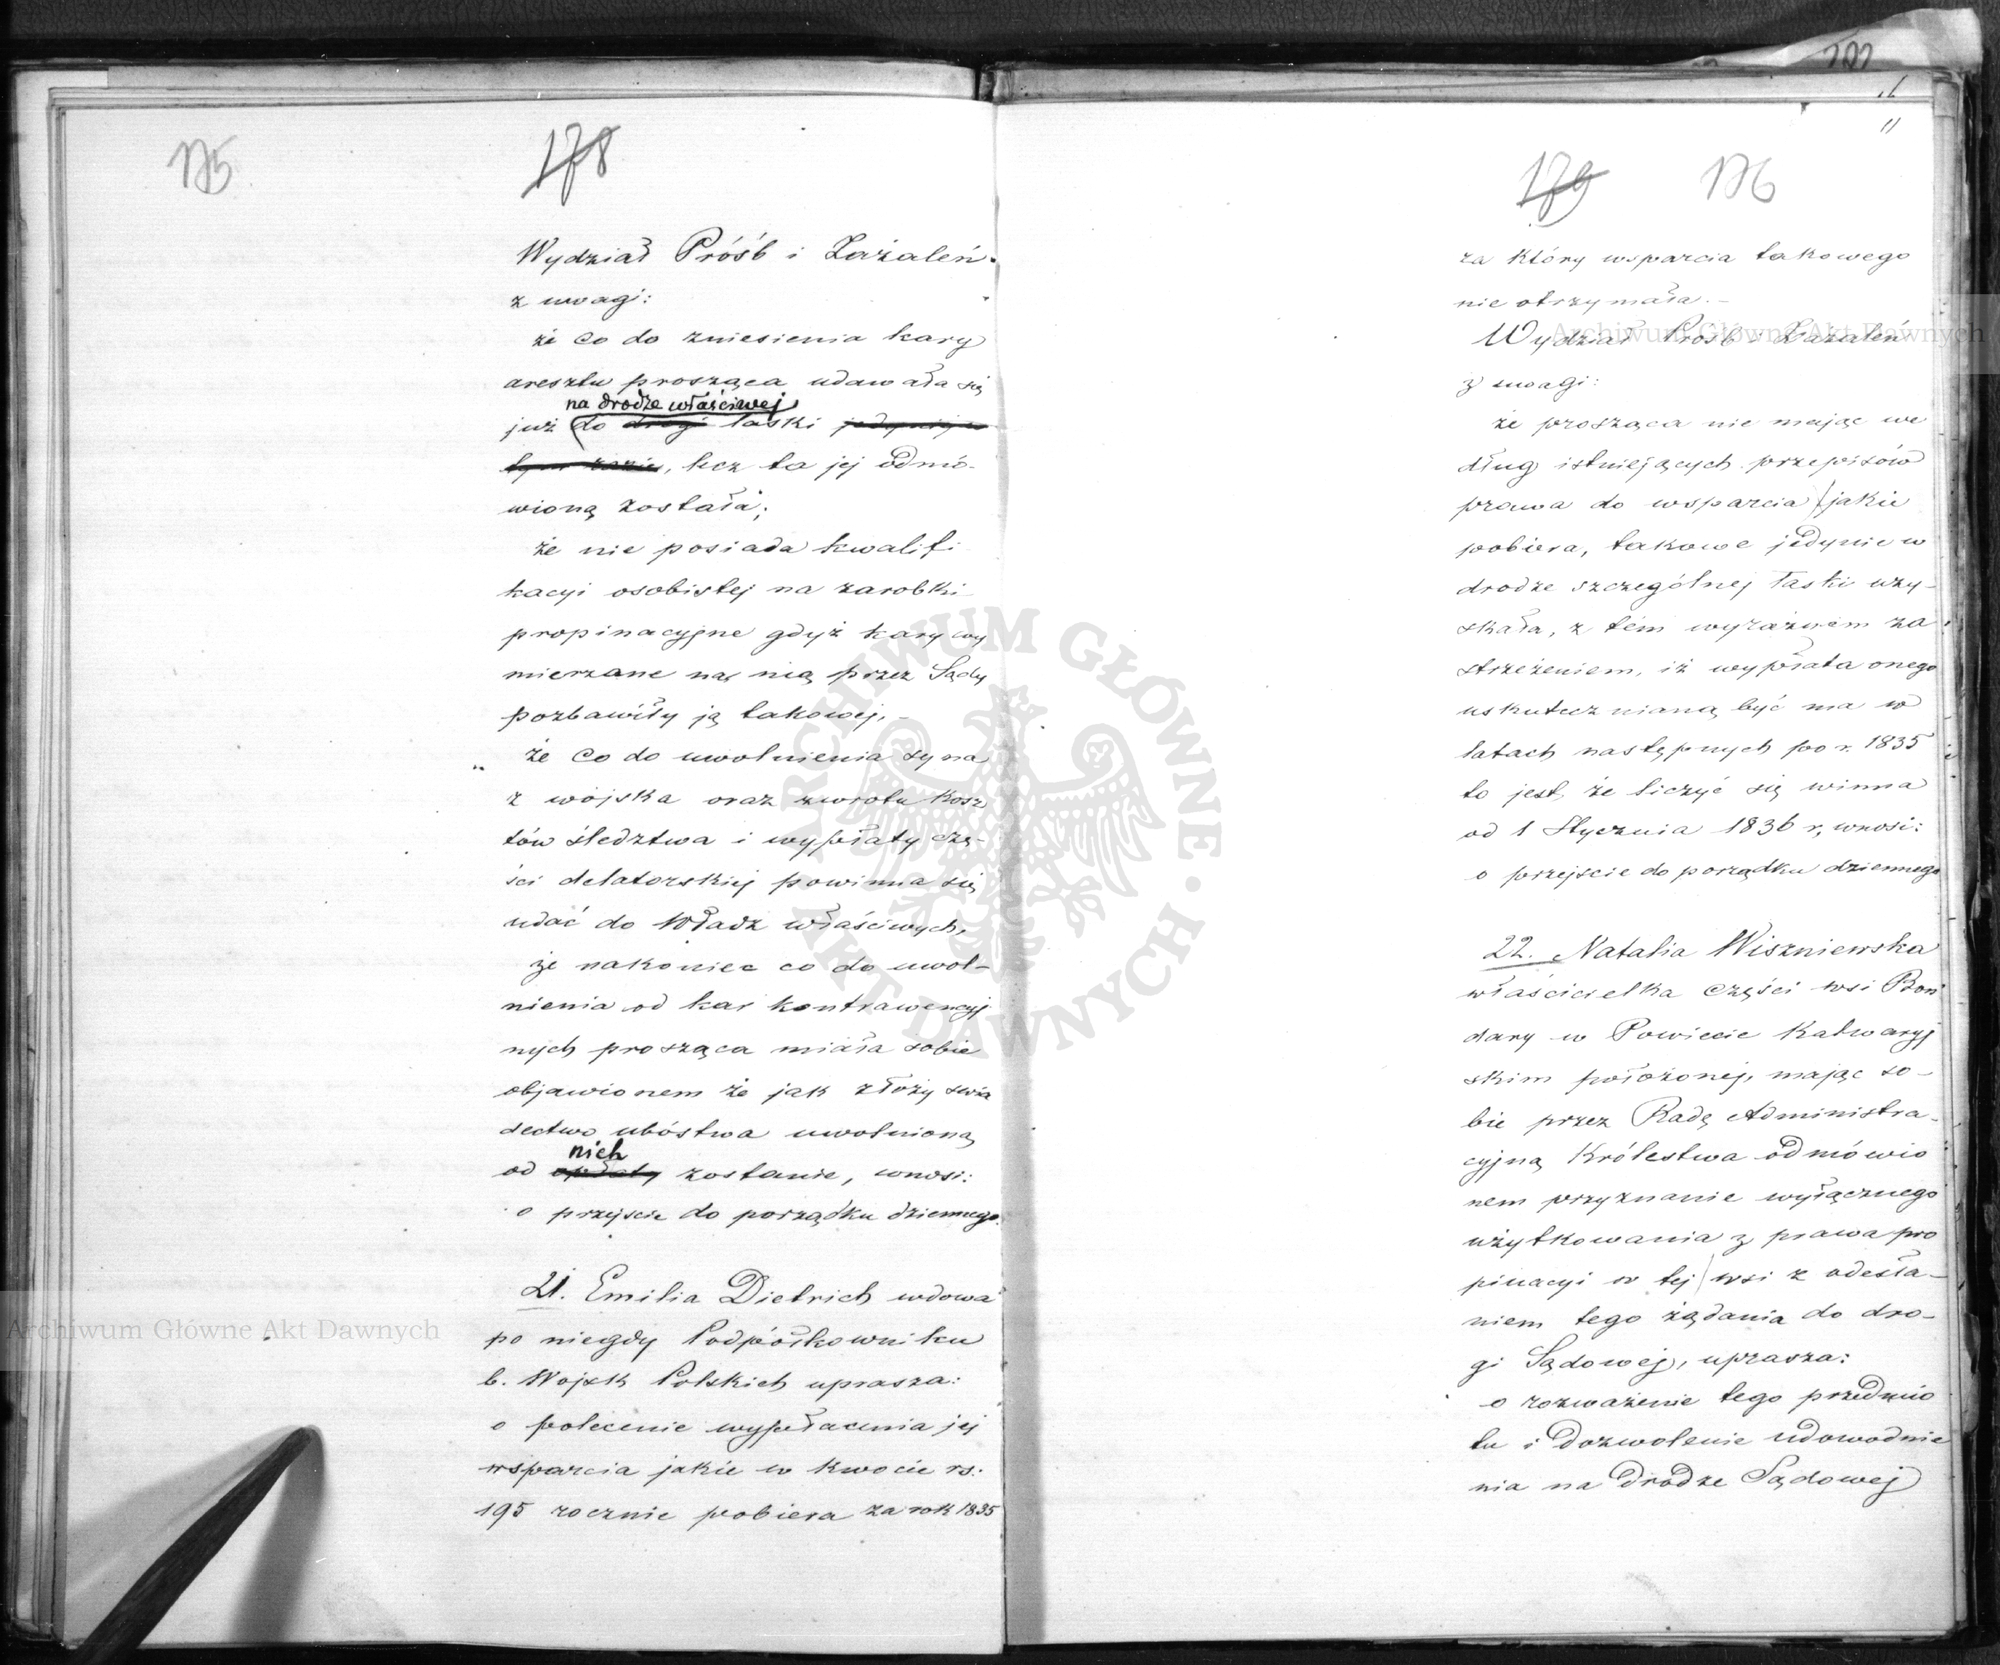 175
178
Wydział Próśb i Zażaleń.
z uwagi:
że co do zniesienia kary
aresztu prosząca udawała się
na drodze właściwej
już do drogi łaski jedynie w
tym razie, lecz ta jej odmó-
wioną została;
że nie posiada kwalifi
kacyi osobistej na zarobki
propinacyjne gdyż kary wy
mierzane na nią przez Sądy
pozbawiły ją takowej, -
że co do uwolnienia syna
z wojska oraz zwrotu kosz
tów śledztwa i wypłaty czę-
ści delatorskiej powinna się
udać do Władz właściwych,
że nakoniec co do uwol-
nienia od kar kontrawencyj
nych prosząca miała sobie
objawionem że jak złoży świa
dectwo ubóstwa uwolnioną
nich
od opłaty zostanie, wnosi:
o przejście do porządku dziennego.
21. Emilia Dietrich wdowa
po niegdy Podpółkowniku
b. Wojsk Polskich uprasza:
o polecenie wypłacenia jej
wsparcia jakie w kwocie rs:
195 rocznie pobiera za rok 1835
179
176
za który wsparcia takowego
nie otrzymała. -
Wydział Próśb i Zażaleń
z uwagi:
że prosząca nie mając we
dług istniejących przepisów
prawa do wsparcia jakie
pobiera, takowe jedynie w
drodze szczególnej łaski uzy-
skała, z tém wyraźnem za
strzeżeniem, iż wypłata onego
uskutecznianą być ma w
latach następnych po r. 1835
to jest, że liczyć się winna
od 1 Stycznia 1836 r, wnosi:
o przejście do porządku dziennego
22. Natalia Wiszniewska
właścicielka części wsi Bon
dary w Powiecie Kalwaryj
skim położonej, mając so-
bie przez Radę Administra-
cyjną Królestwa odmówio
nem przyznanie wyłącznego
użytkowania z prawa pro
pinacyi w tej wsi z odesła-
niem tego żądania do dro-
gi Sądowej, uprasza:
o rozważenie tego przedmio
tu i dozwolenie udowodnie
nia na drodze Sądowej
Archiwum Główne Akt Dawnych
Archiwum Główne Akt Dawnych
ARCHIWUM GŁÓWNE · AKT DAWNYCH ·